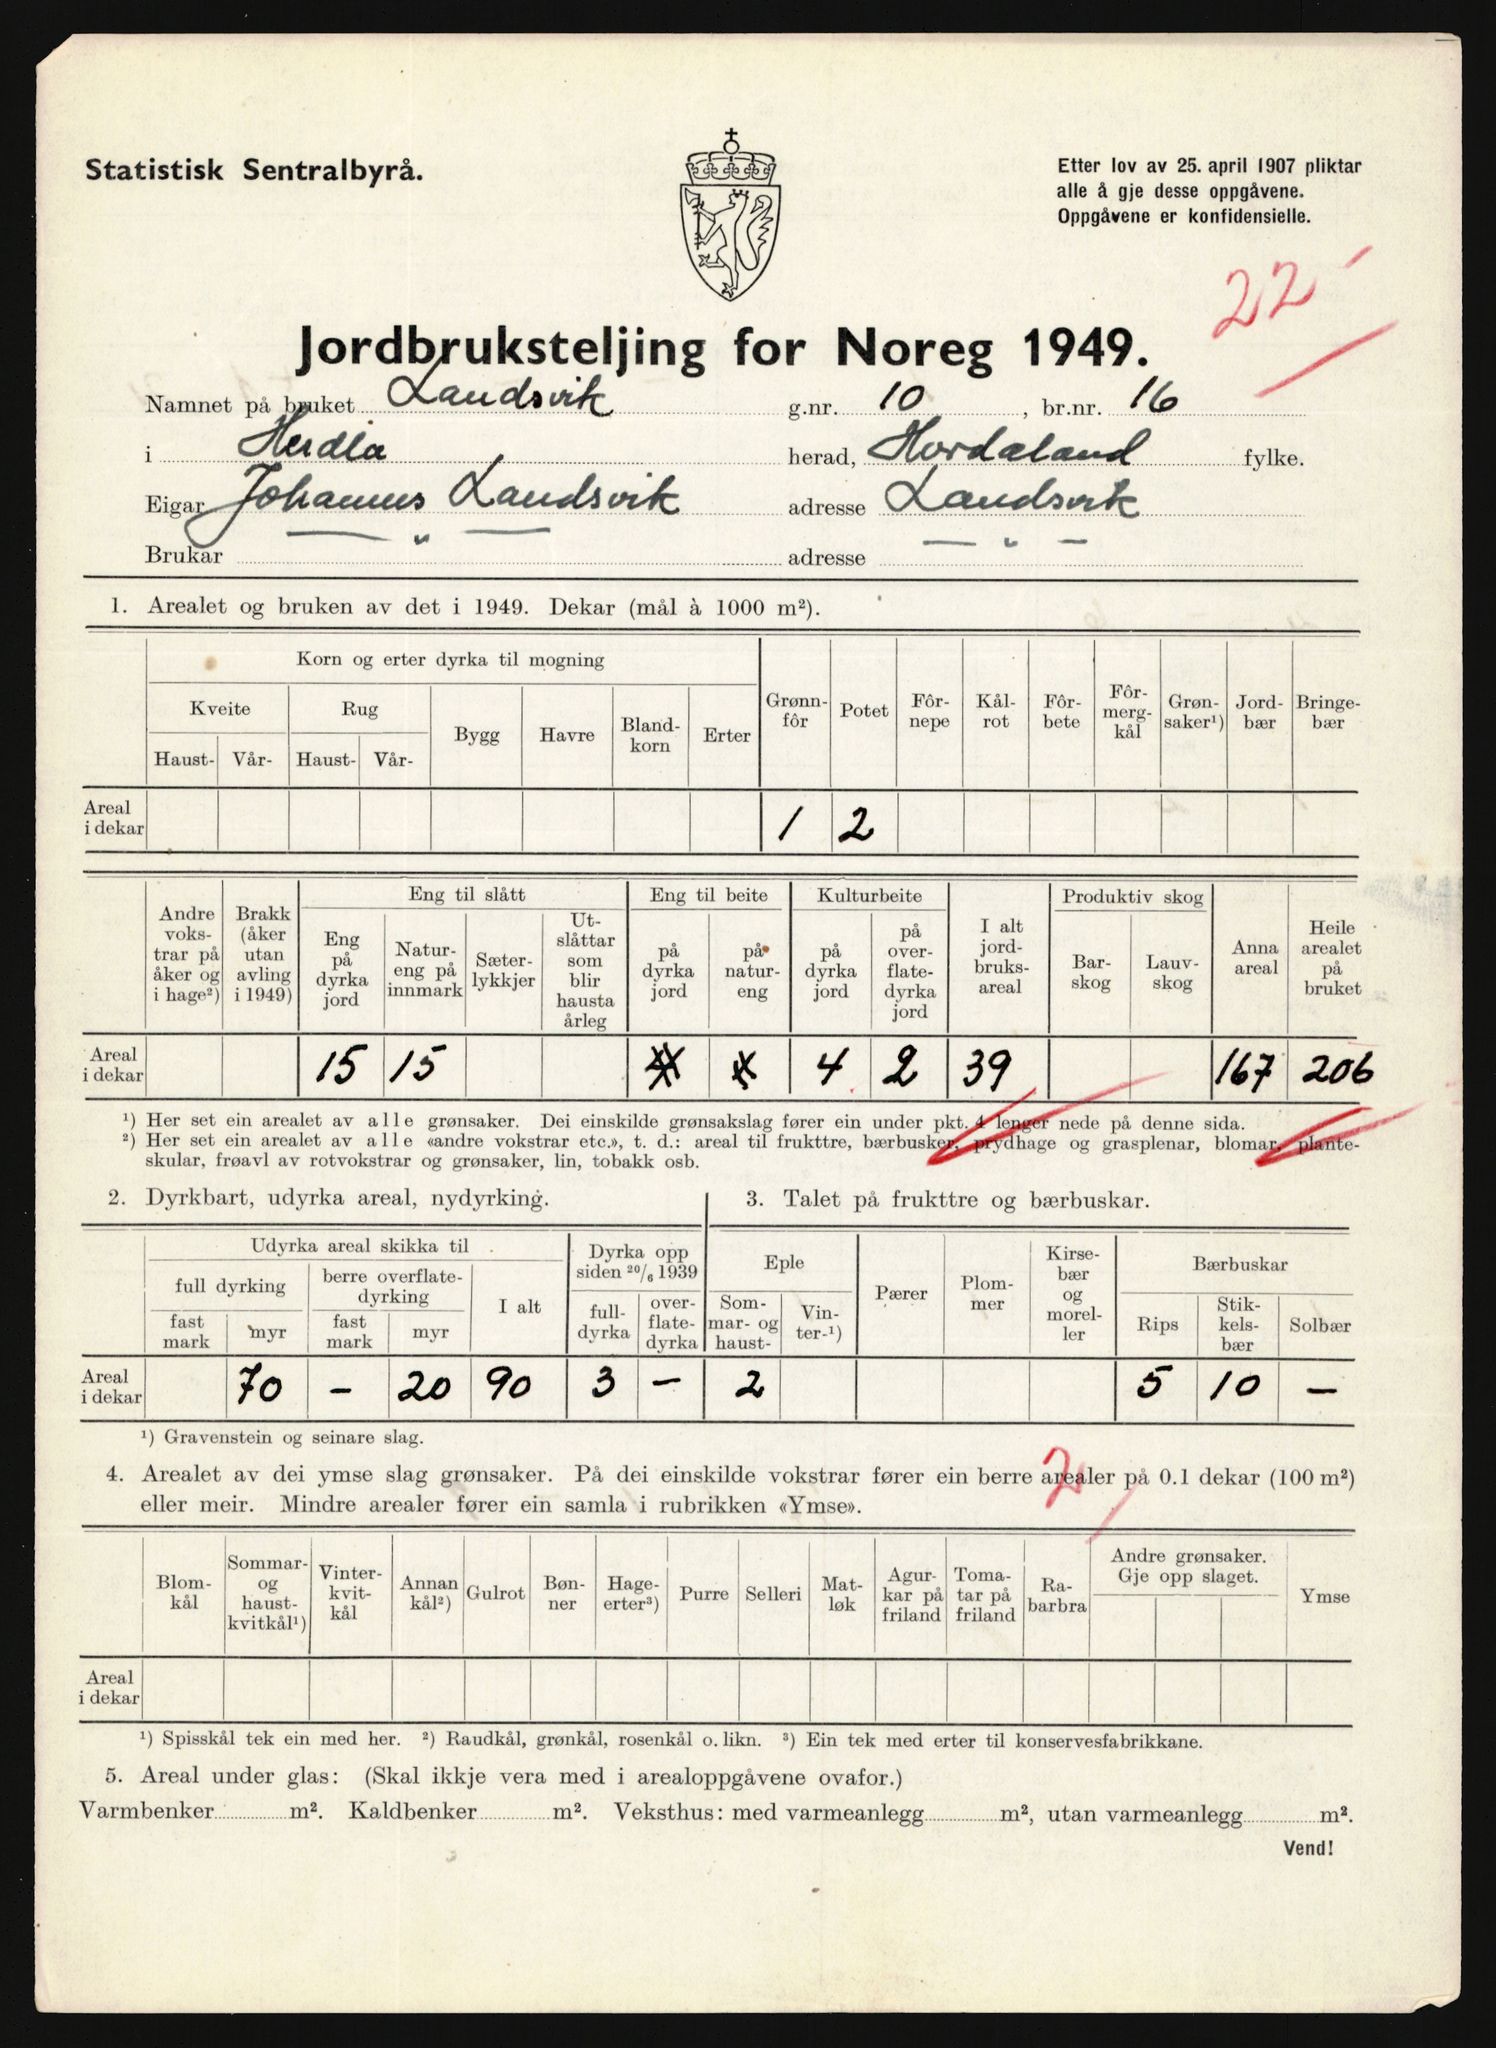 Statistisk Sentralbyrå.
Etter lov av 25. april 1907 pliktar
alle å gje desse oppgåvene.
Oppgåvene er konfidensielle.
22
Jordbruksteljing for Noreg 1949.
Namnet på bruket Landsvik g.nr. 10, br.nr. 16
i Herdla herad, Hordaland fylke.
Eigar Johannes Landsvik adresse Landsvik
Brukar — „ — adresse — „ —
1. Arealet og bruken av det i 1949. Dekar (mål à 1000 m²).
Korn og erter dyrka til mogning
Kveite Rug Bygg Havre Bland-korn Erter Grønn-fôr Potet Fôr-nepe Kål-rot Fôr-bete Fôr-merg-kål Grøn-saker¹) Jord-bær Bringe-bær
Haust- Vår- Haust- Vår-
Areal i dekar 1 2
Andre voks-trar på åker og i hage²) Brakk (åker utan avling i 1949) Eng til slått Eng til beite Kulturbeite I alt jord-bruks-areal Produktiv skog Anna areal Heile arealet på bruket
Eng på dyrka jord Natur-eng på innmark Sæter-lykkjer Ut-slåttar som blir hausta årleg på dyrka jord på natur-eng på dyrka jord på over-flate-dyrka jord Bar-skog Lauv-skog
Areal i dekar 15 15 4 2 39 167 206
¹) Her set ein arealet av alle grønsaker. Dei einskilde grønsakslag fører ein under pkt. 4 lenger nede på denne sida.
²) Her set ein arealet av alle «andre vokstrar etc.», t. d.: areal til frukttre, bærbusker, prydhage og grasplenar, blomar, plante-
skular, frøavl av rotvokstrar og grønsaker, lin, tobakk osb.
2. Dyrkbart, udyrka areal, nydyrking.
3. Talet på frukttre og bærbuskar.
Udyrka areal skikka til Dyrka opp siden 20/6 1939 Eple Pærer Plom-mer Kirse-bær og morel-ler Bærbuskar
full dyrking berre overflate-dyrking I alt full-dyrka over-flate-dyrka Som-mar- og haust- Vin-ter-¹) Rips Stik-kels-bær Solbær
fast mark myr fast mark myr
Areal i dekar 70 – 20 90 3 – 2 5 10 –
¹) Gravenstein og seinare slag.
4. Arealet av dei ymse slag grønsaker. På dei einskilde vokstrar fører ein berre arealer på 0.1 dekar (100 m²)
eller meir. Mindre arealer fører ein samla i rubrikken «Ymse».
2
Blom-kål Sommar- og haust-kvitkål¹) Vinter-kvit-kål Annan kål²) Gulrot Bøn-ner Hage-erter³) Purre Selleri Mat-løk Agur-kar på friland Toma-tar på friland Ra-barbra Andre grønsaker. Gje opp slaget. Ymse
Areal i dekar
¹) Spisskål tek ein med her. ²) Raudkål, grønkål, rosenkål o. likn. ³) Ein tek med erter til konservesfabrikkane.
5. Areal under glas: (Skal ikkje vera med i arealoppgåvene ovafor.)
Varmbenker m². Kaldbenker m². Veksthus: med varmeanlegg m², utan varmeanlegg m².
Vend!